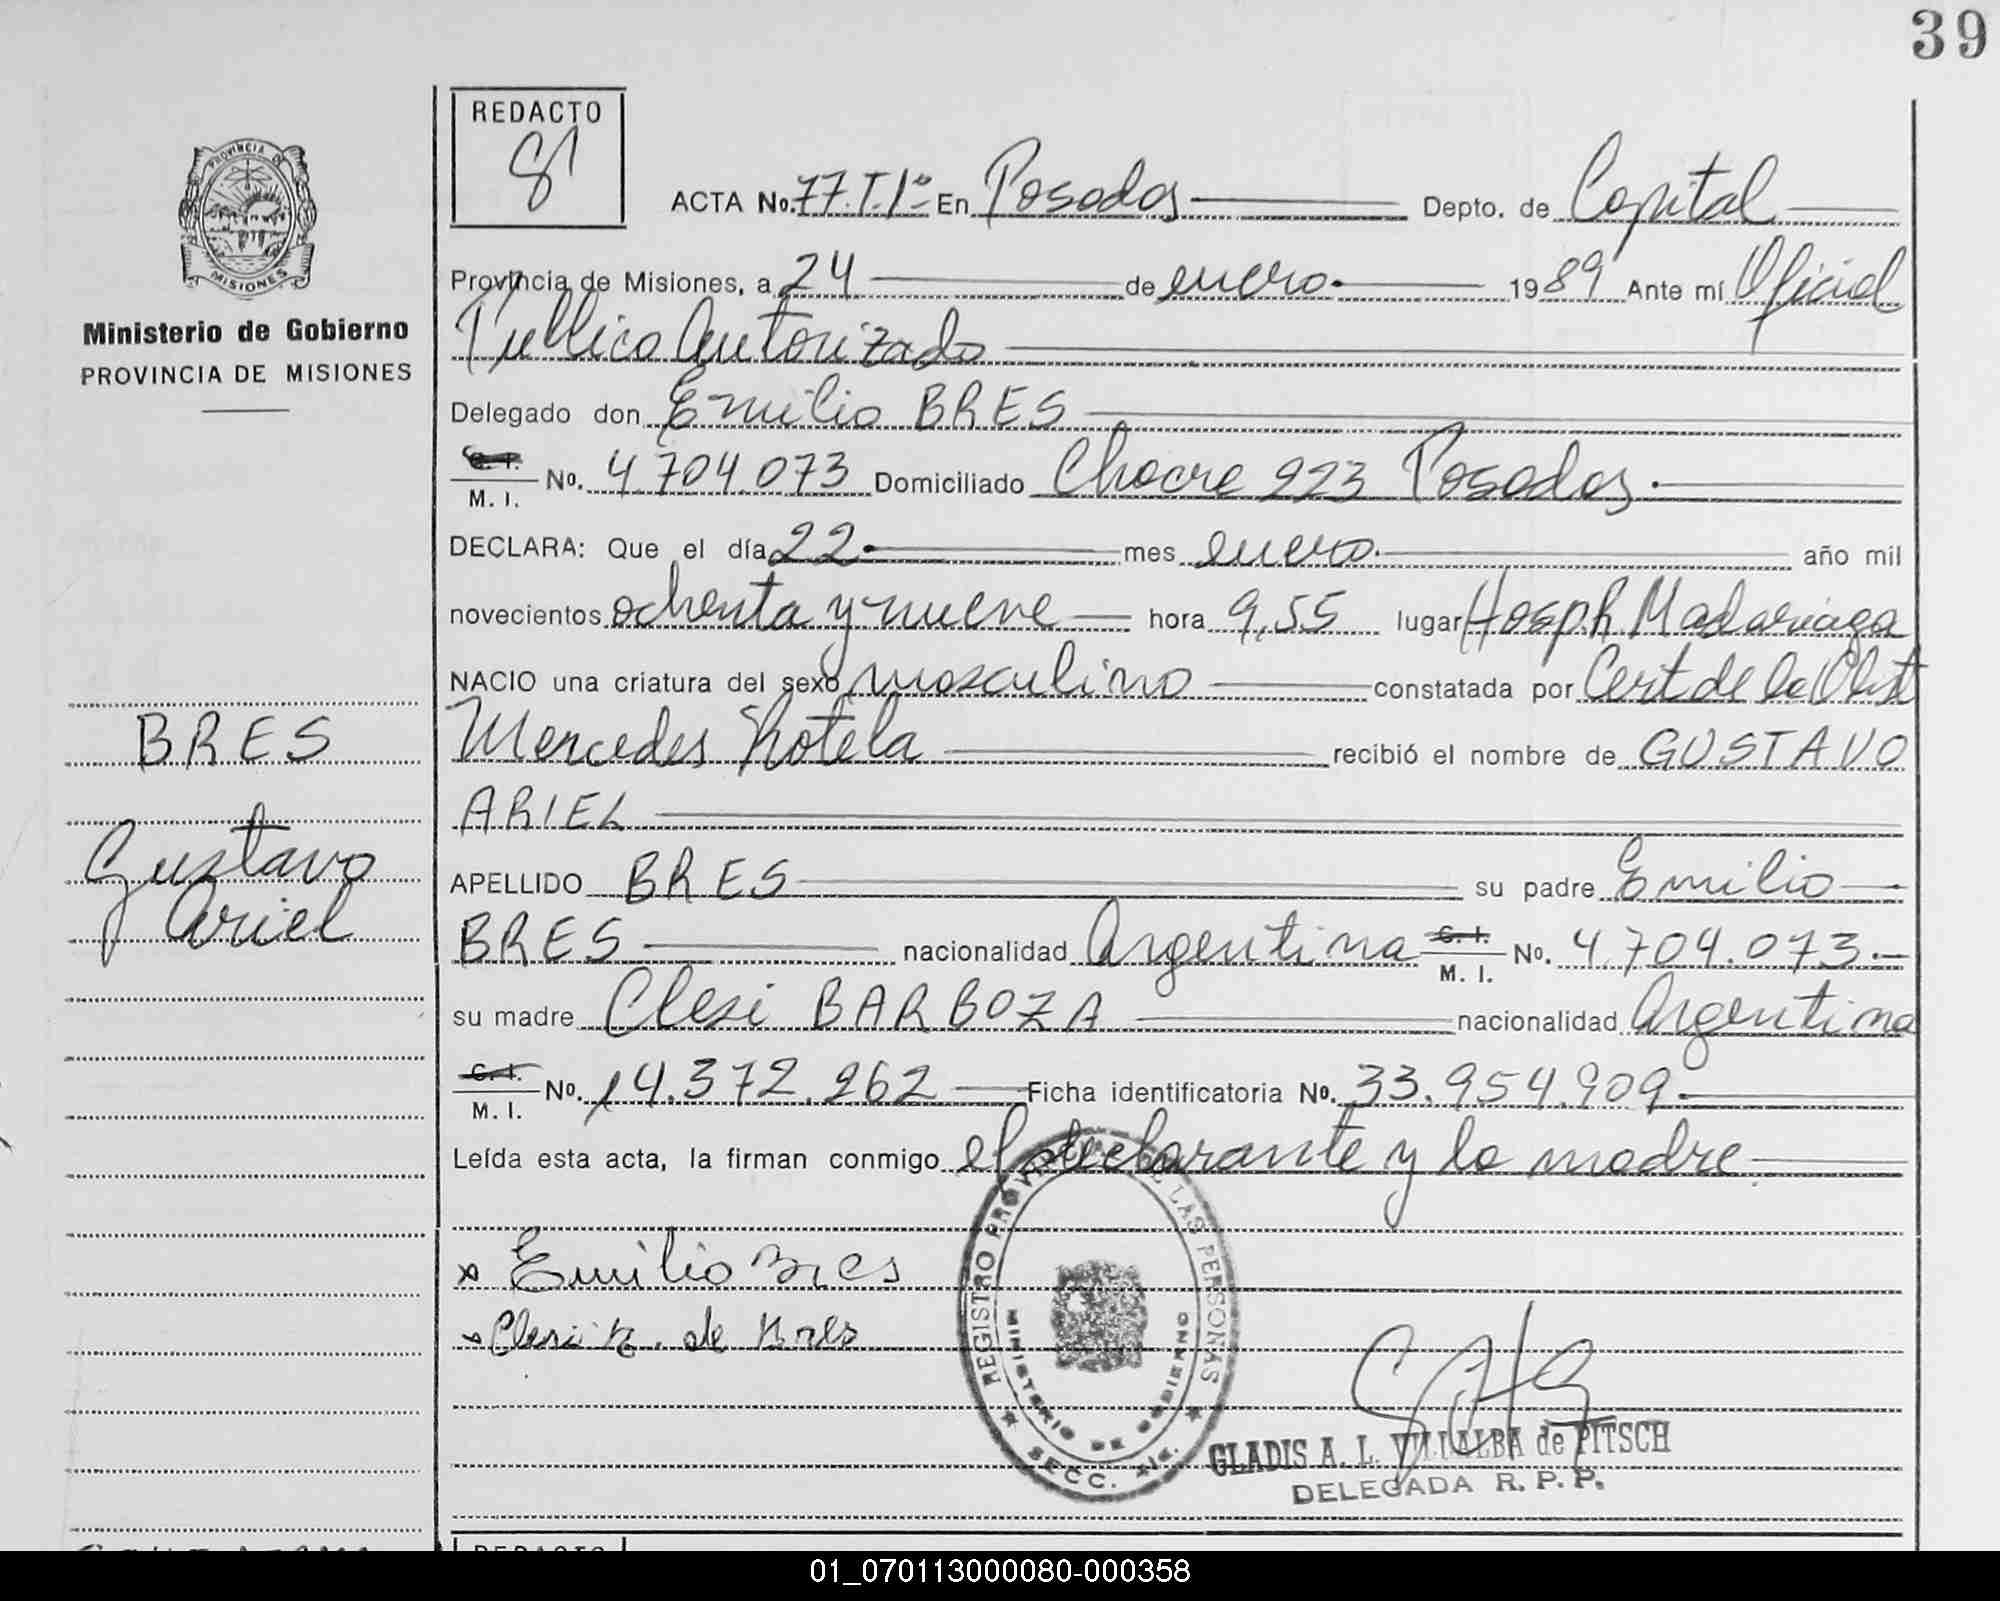 39
REDACTO
ACTA No. 77.T.1º En Posadas Depto. de Capital
PROVINCIA DE
MISIONES
Ministerio de Gobierno
PROVINCIA DE MISIONES
Provincia de Misiones, a 24 de enero 1989 Ante mí Oficial
Publico Autorizado
Delegado don Emilio BRES
C. I.
M. I. No. 4.704.073 Domiciliado Chacra 223 Posadas.
DECLARA: Que el día 22 mes enero año mil
novecientos ochenta y nueve hora 9,55 lugar Hosp. R. Madariaga
NACIO una criatura del sexo masculino constatada por Cert de la Obst
Mercedes Rotela recibió el nombre de GUSTAVO
ARIEL
BRES
Gustavo
Ariel
APELLIDO BRES su padre Emilio
BRES nacionalidad Argentina C. I. M. I. No. 4.704.073.-
su madre Clesi BARBOZA nacionalidad Argentina
C. I.
M. I. No. 14.372.262 Ficha identificatoria No. 33.954.909
Leída esta acta, la firman conmigo el declarante y la madre
x Emilio Bres
x Clesi B. de Bres
REGISTRO PROVINCIAL DE LAS PERSONAS
MINISTERIO DE GOBIERNO
SECC.
GLADIS A. L. VILLALBA de PITSCH
DELEGADA R. P. P.
REDACTO
01_070113000080-000358